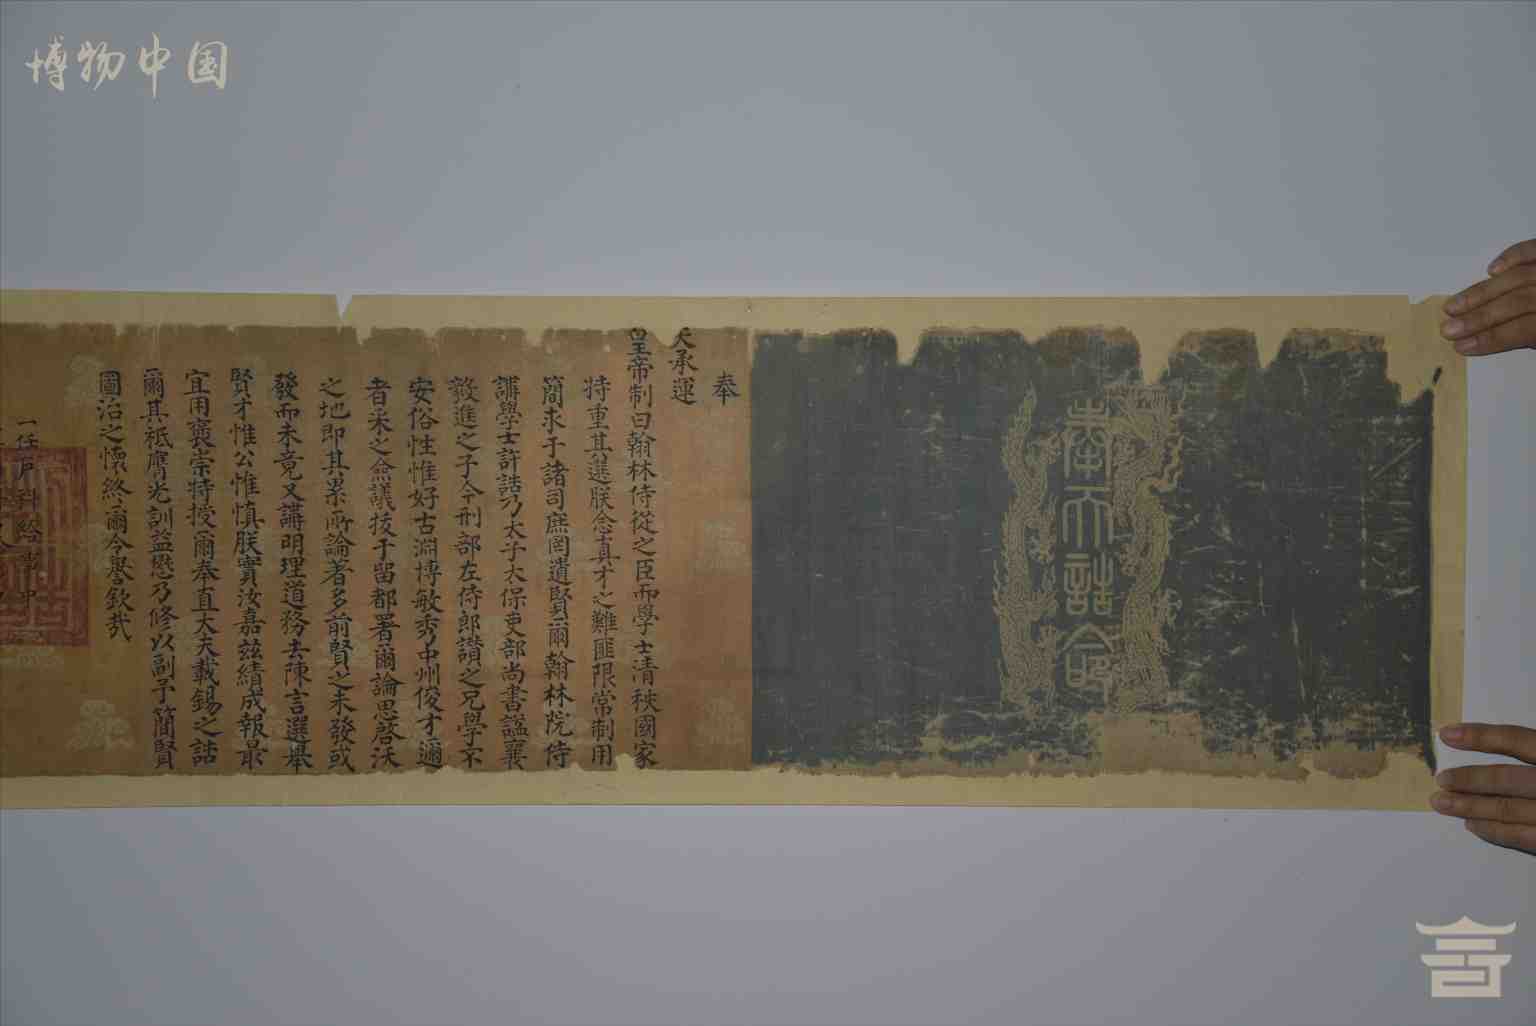 博物中国
奉天誥命
奉
天承運
皇帝制曰翰林侍從之臣而學士清秩國家
特重其選朕念真才之難匪限常制用
簡求于諸司庶罔遺賢爾翰林院侍
講學士許誥乃太子太保吏部尚書謚襄
毅進之子今刑部左侍郎讚之兄學不
安俗性惟好古淵博敏秀中州俊才邇
者采之僉議技于留都署爾論思啓沃
之地即其累所論著多前賢之未發或
發而未竟又講明理道務去陳言選舉
賢才惟公惟慎朕實汝嘉兹績成報最
宜用褒崇特授爾奉直大夫載錫之誥
爾其祗膺光訓益懋乃修以副予簡賢
圖治之懷終爾令譽欽哉
一任戶科給事中